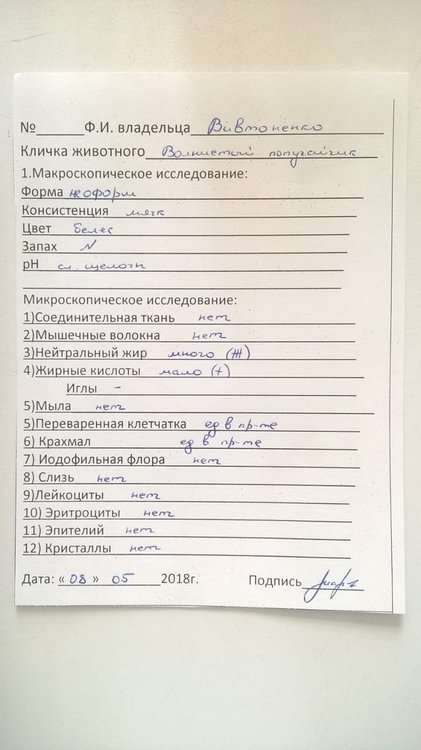 № Ф.И. владельца Вивтоненко
Кличка животного Волнистый попугайчик
1.Макроскопическое исследование:
Форма неоформ
Консистенция мягк
Цвет белес
Запах N
pH сл. щелочн
Микроскопическое исследование:
1)Соединительная ткань нет
2)Мышечные волокна нет
3)Нейтральный жир много (+++)
4)Жирные кислоты мало (+)
Иглы –
5)Мыла нет
5)Переваренная клетчатка ед в пр-те
6) Крахмал ед в пр-те
7) Иодофильная флора нет
8) Слизь нет
9)Лейкоциты нет
10) Эритроциты нет
11) Эпителий нет
12) Кристаллы нет
Дата: « 08 » 05 2018г. Подпись